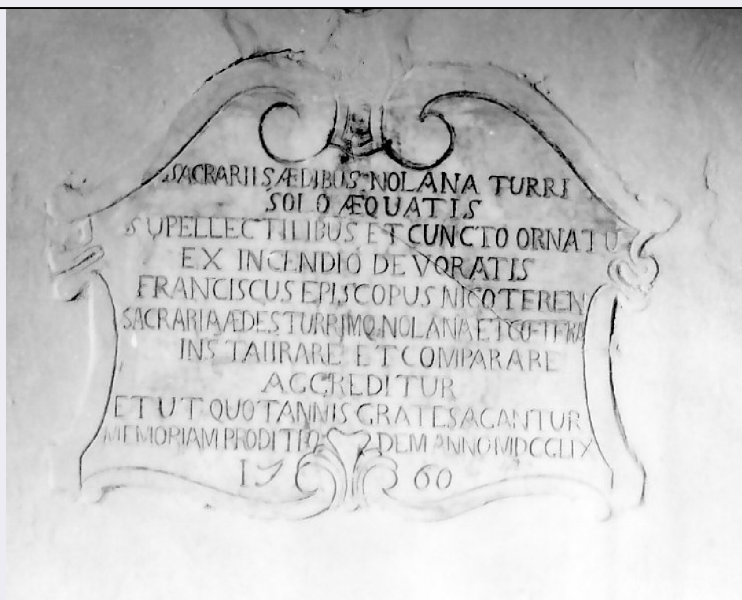 SACRARIIS ÆDIBUS NOLANA TURRI
SOLO ÆQUATIS
SUPELLECTILIBUS ET CUNCTO ORNATU
EX INCENDIO DEVORATIS
FRANCISCUS EPISCOPUS NICOTEREN
SACRARIA ÆDES TURRIMQ NOLANA ET CŒTERA
INSTAURARE ET COMPARARE
AGGREDITUR
ET UT QUOTANNIS GRATES AGANTUR
MEMORIAM PRODIT ANNO MDCCLIX
1760